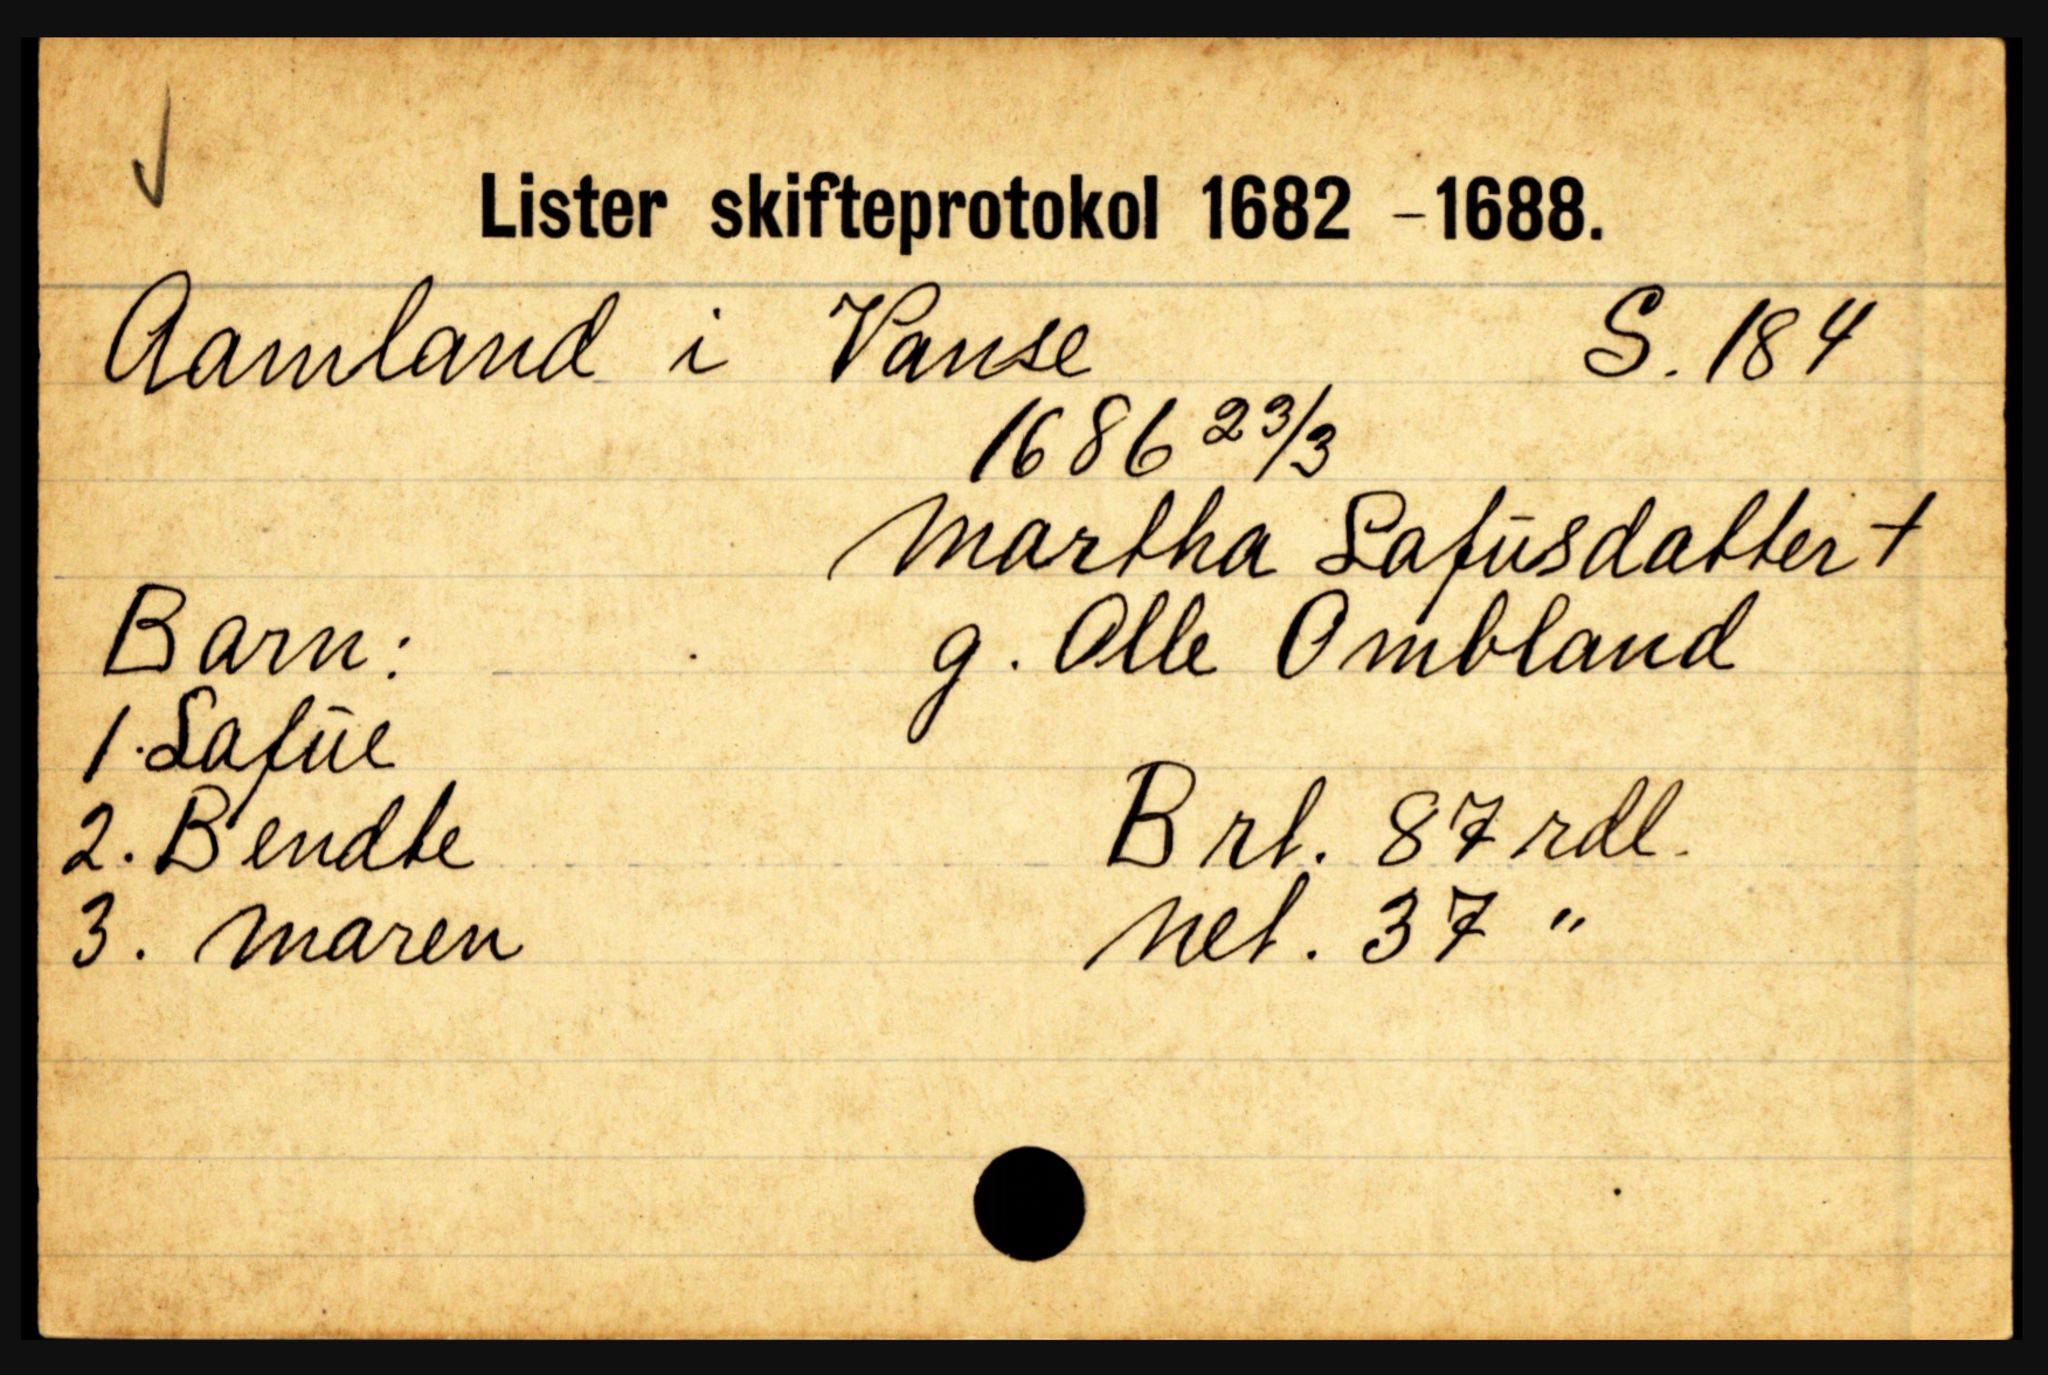 Lister skifteprotokol 1682 - 1688.
Aamland i Vanse S. 184
1686 23/3
Martha Lafūsdatter †
Barn: g. Olle Ombland
1. Lafūe
2. Bendte Brt. 87 rdl.
3. Maren Net. 37 "